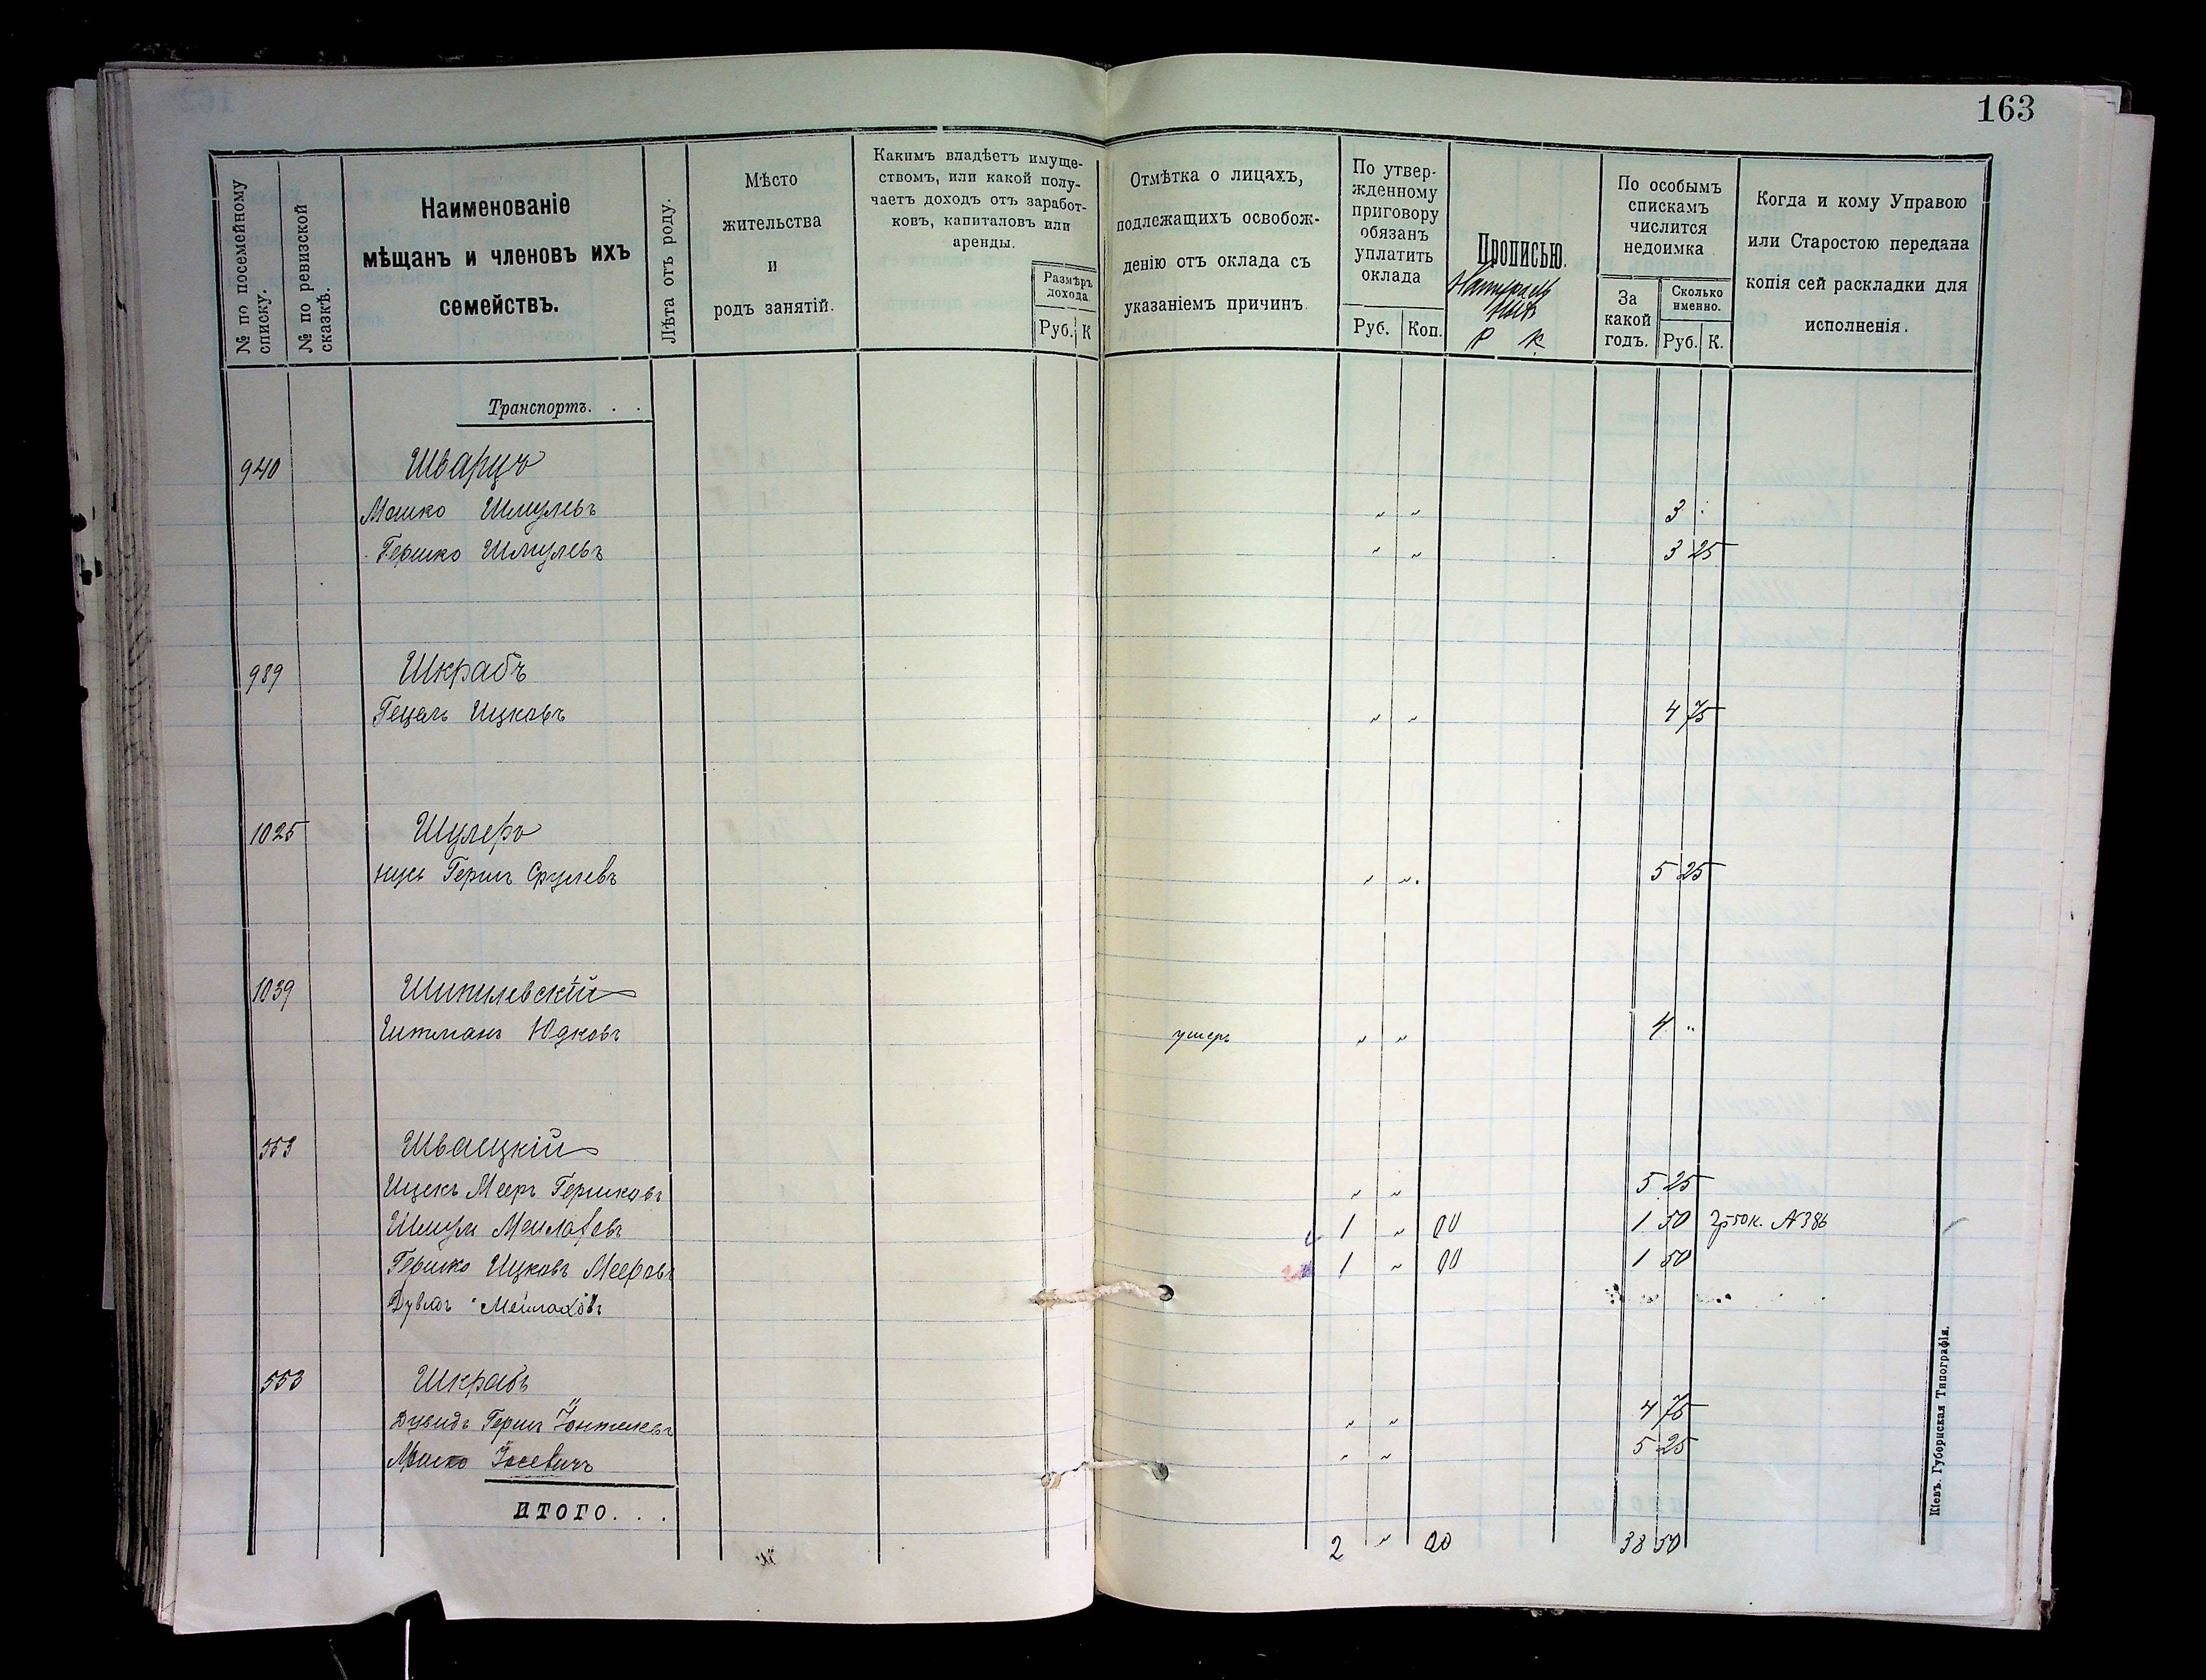 163
№ по посемейному списку.
№ по ревизской сказкѣ.
Наименованіе
мѣщанъ и членовъ ихъ
семействъ.
Лѣта отъ роду.
Мѣсто
жительства
и
родъ занятій.
Какимъ владѣетъ имуще-
ствомъ, или какой полу-
чаетъ доходъ отъ заработ-
ковъ, капиталовъ или
аренды.
Размѣръ
дохода
Руб. К
Отмѣтка о лицахъ,
подлежащихъ освобож-
денію отъ оклада съ
указаніемъ причинъ
По утвер-
жденному
приговору
обязанъ
уплатить
оклада
Руб. Коп.
Прописью.
Р К
По особымъ
спискамъ
числится
недоимка
За
какой
годъ.
Сколько
именно.
Руб. К.
Когда и кому Управою
или Старостою передана
копія сей раскладки для
исполненія.
Транспортъ. . .
940 Шварцъ
Мошко Шмулевъ " " 3 :
Гершко Шмулевъ " " 3 25
989 Шкрабъ
Гецель Ицковъ " " 4 75
1025 Шулеръ
Нусь Гершъ Срулевъ " " 5 25
1039 Шипилевскій
Гитманъ Юдковъ умеръ " " 4 "
553 Шваецкій
Ицекъ Мееръ Гершковъ " " 5 25
Шмуль Мейлаховъ 1 " 00 1 50 2р50к. №386
Гершко Ицковъ Мееровъ 1 " 00 1 50
Мейлаховъ
553 Шкрабъ
Дувидъ Гершъ " " 4 75
Мошко Іосевичъ " " 5 25
ИТОГО. . .
2 " 00 38 50
Кіевъ. Губернская Типографія.